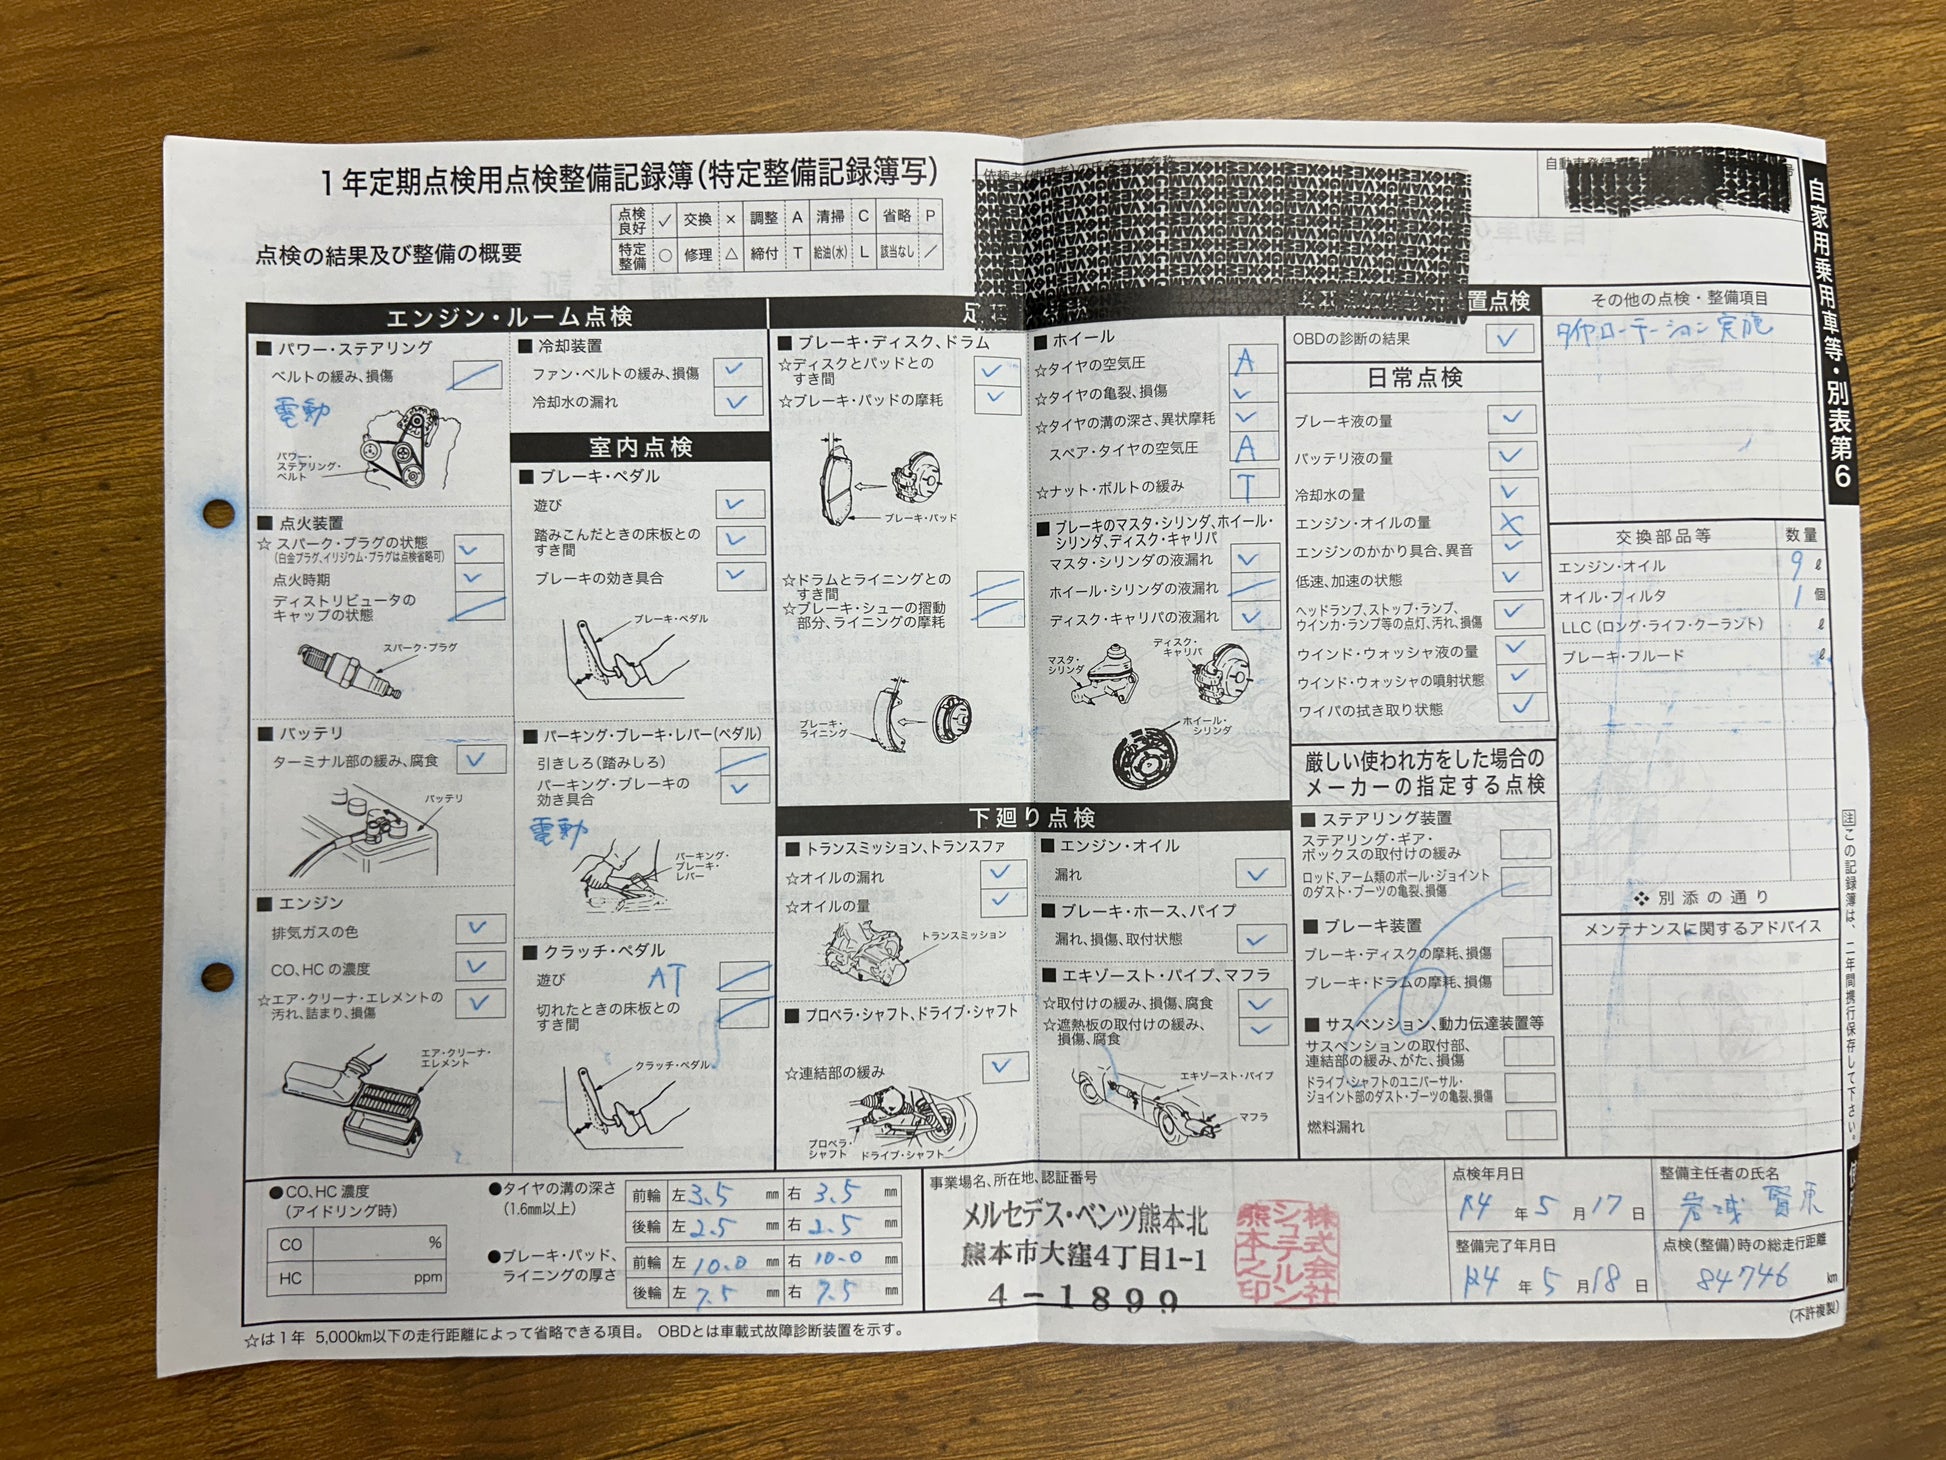 1年定期点検用点検整備記録簿(特定整備記録簿写)
点検の結果及び整備の概要
点検良好 ✓ 交換 × 調整 A 清掃 C 省略 P
特定整備 ○ 修理 △ 締付 T 給油(水) L 該当なし /
依頼者(使用者)の氏名又は名称
自動車登録
自家用乗用車等・別表第6
エンジン・ルーム点検
■ パワー・ステアリング
ベルトの緩み、損傷 /
電動
パワー・
ステアリング・
ベルト
■ 点火装置
☆ スパーク・プラグの状態 ✓
(白金プラグ、イリジウム・プラグは点検省略可)
点火時期 ✓
ディストリビュータの
キャップの状態 /
スパーク・プラグ
■ バッテリ
ターミナル部の緩み、腐食 ✓
バッテリ
■ エンジン
排気ガスの色 ✓
CO、HCの濃度 ✓
☆エア・クリーナ・エレメントの
汚れ、詰まり、損傷 ✓
エア・クリーナ・
エレメント
■ 冷却装置
ファン・ベルトの緩み、損傷 ✓
冷却水の漏れ ✓
室内点検
■ ブレーキ・ペダル
遊び ✓
踏みこんだときの床板との
すき間 ✓
ブレーキの効き具合 ✓
ブレーキ・ペダル
■ パーキング・ブレーキ・レバー(ペダル)
引きしろ(踏みしろ) /
パーキング・ブレーキの
効き具合 ✓
電動
パーキング・
ブレーキ・
レバー
■ クラッチ・ペダル
遊び AT /
切れたときの床板との
すき間 /
クラッチ・ペダル
■ ブレーキ・ディスク、ドラム
☆ディスクとパッドとの
すき間 ✓
☆ブレーキ・パッドの摩耗 ✓
ブレーキ・パッド
☆ドラムとライニングとの
すき間 /
☆ブレーキ・シューの摺動
部分、ライニングの摩耗 /
ブレーキ・
ライニング
■ ホイール
☆タイヤの空気圧 A
☆タイヤの亀裂、損傷 ✓
☆タイヤの溝の深さ、異状摩耗 ✓
スペア・タイヤの空気圧 A
☆ナット・ボルトの緩み T
■ ブレーキのマスタ・シリンダ、ホイール・
シリンダ、ディスク・キャリパ
マスタ・シリンダの液漏れ ✓
ホイール・シリンダの液漏れ /
ディスク・キャリパの液漏れ ✓
マスタ・
シリンダ
ディスク・
キャリパ
ホイール・
シリンダ
下廻り点検
■ トランスミッション、トランスファ
☆オイルの漏れ ✓
☆オイルの量 ✓
トランスミッション
■ プロペラ・シャフト、ドライブ・シャフト
☆連結部の緩み ✓
プロペラ・
シャフト
ドライブ・シャフト
■ エンジン・オイル
漏れ ✓
■ ブレーキ・ホース、パイプ
漏れ、損傷、取付状態 ✓
■ エキゾースト・パイプ、マフラ
☆取付けの緩み、損傷、腐食 ✓
☆遮熱板の取付けの緩み、
損傷、腐食 ✓
エキゾースト・パイプ
マフラ
置点検
OBDの診断の結果 ✓
日常点検
ブレーキ液の量 ✓
バッテリ液の量 ✓
冷却水の量 ✓
エンジン・オイルの量 ×
エンジンのかかり具合、異音 ✓
低速、加速の状態 ✓
ヘッドランプ、ストップ・ランプ、
ウインカ・ランプ等の点灯、汚れ、損傷 ✓
ウインド・ウォッシャ液の量 ✓
ウインド・ウォッシャの噴射状態 ✓
ワイパの拭き取り状態 ✓
厳しい使われ方をした場合の
メーカーの指定する点検
■ ステアリング装置
ステアリング・ギア・
ボックスの取付けの緩み
ロッド、アーム類のボール・ジョイント
のダスト・ブーツの亀裂、損傷
■ ブレーキ装置
ブレーキ・ディスクの摩耗、損傷
ブレーキ・ドラムの摩耗、損傷
■ サスペンション、動力伝達装置等
サスペンションの取付部、
連結部の緩み、がた、損傷
ドライブ・シャフトのユニバーサル・
ジョイント部のダスト・ブーツの亀裂、損傷
燃料漏れ
その他の点検・整備項目
タイヤローテーション実施
交換部品等 数量
エンジン・オイル 9 ℓ
オイル・フィルタ 1 個
LLC(ロング・ライフ・クーラント) ℓ
ブレーキ・フルード ℓ
❖ 別添の通り
メンテナンスに関するアドバイス
注 この記録簿は、二年間携行保存して下さい。
●CO、HC濃度
(アイドリング時)
CO %
HC ppm
●タイヤの溝の深さ
(1.6mm以上)
前輪 左 3.5 mm 右 3.5 mm
後輪 左 2.5 mm 右 2.5 mm
●ブレーキ・パッド、
ライニングの厚さ
前輪 左 10.0 mm 右 10.0 mm
後輪 左 7.5 mm 右 7.5 mm
事業場名、所在地、認証番号
メルセデス・ベンツ熊本北
熊本市大窪4丁目1-1
4-1899
株式会社
シュテルン
熊本之印
点検年月日
R4 年 5 月 17 日
整備完了年月日
R4 年 5 月 18 日
整備主任者の氏名
点検(整備)時の総走行距離
84746 km
☆は1年 5,000km以下の走行距離によって省略できる項目。 OBDとは車載式故障診断装置を示す。
(不許複製)